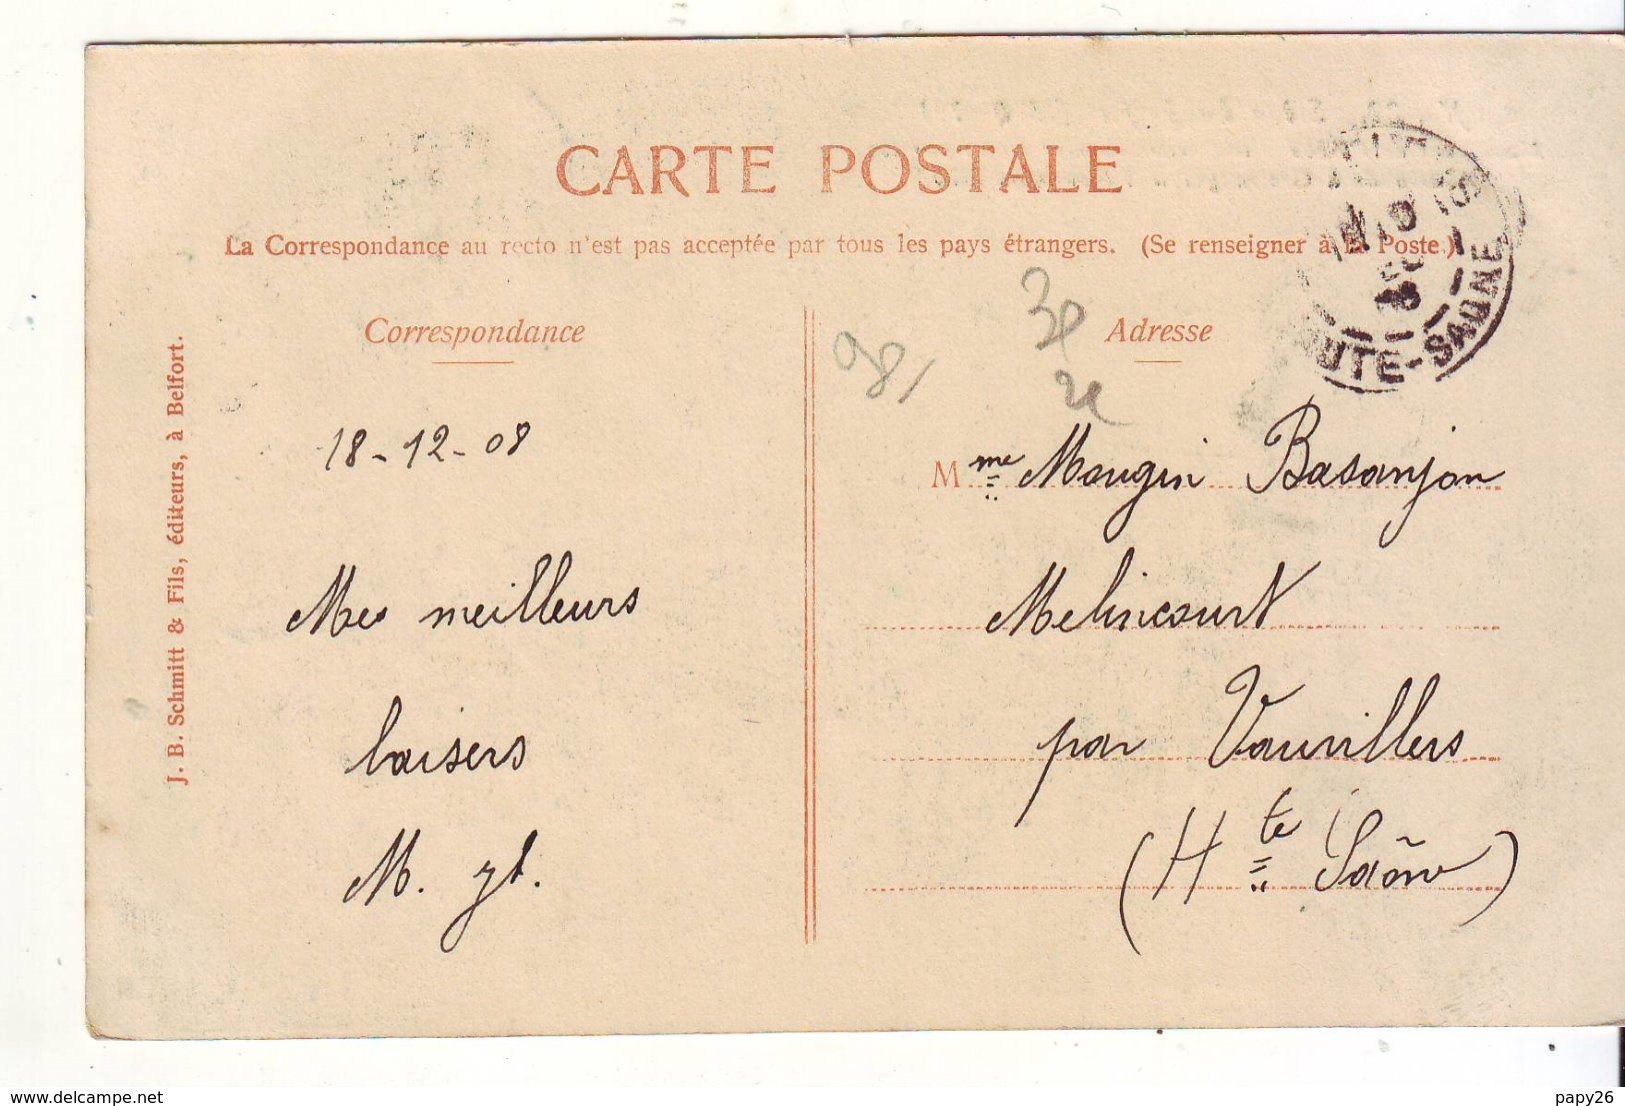 CARTE POSTALE
La Correspondance au recto n'est pas acceptée par tous les pays étrangers. (Se renseigner à la Poste.)
Correspondance
18-12-08
Mes meilleurs
baisers
M. yt.
J. B. Schmitt & Fils, éditeurs, à Belfort.
Adresse
Mme Mougin Basanjon
Melincourt
par Vauvillers
(Hte Saône)
UTE-SAONE
www.delcampe.net
papy26